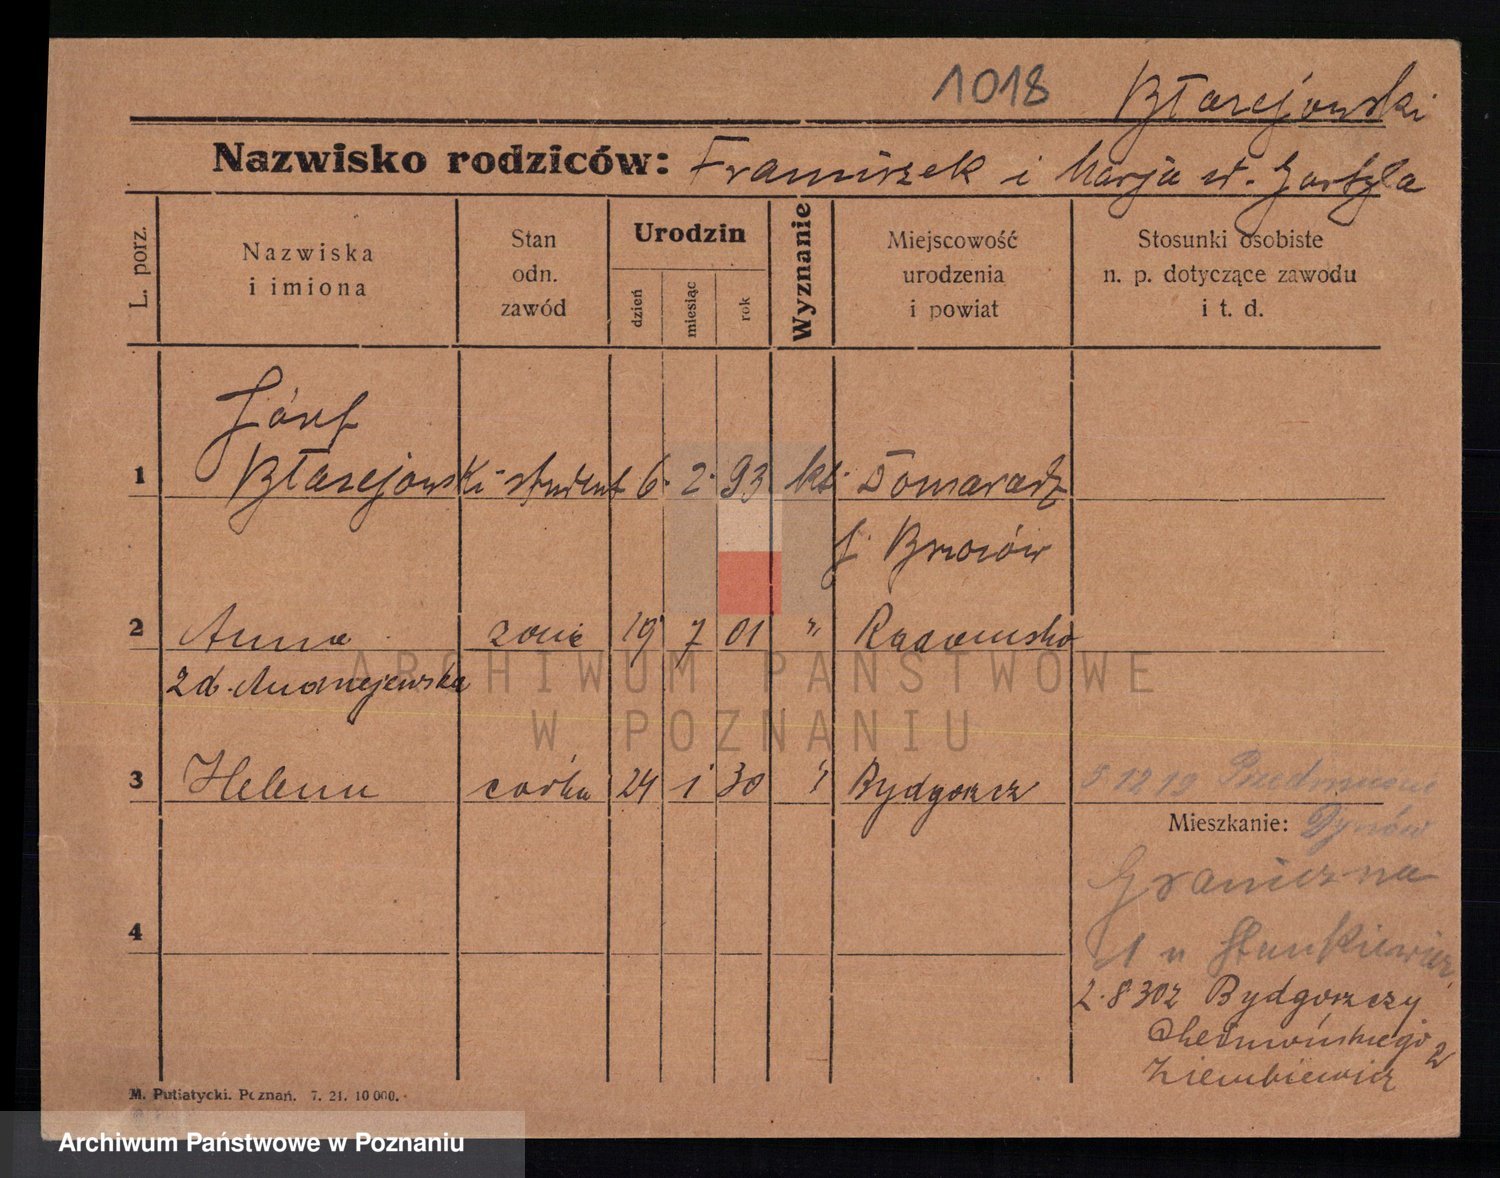 1018 Błazejowski
Nazwisko rodziców: Franciszek i Marja
L. porz.
Nazwiska
i imiona
Stan
odn.
zawód
Urodzin
dzień
miesiąc
rok
Wyznanie
Miejscowość
urodzenia
i powiat
Stosunki osobiste
n. p. dotyczące zawodu
i t. d.
Józef
1 Błazejowski student 6. 2. 93 kt. Domaradz
Brzozów
2 Anna żona 19 7 01 " Radomsko
zd. Andrzejewska
ARCHIWUM PAŃSTWOWE
W POZNANIU
3 Helena córka 24 1 30 " Bydgoszcz
5 12 19
Mieszkanie: Dynów
Graniczna
u Stankiewicz
4
2.8 302 Bydgoszczy
2
Ziembiewicz
M. Putiatycki. Poznań. 7. 21. 10 000.
Archiwum Państwowe w Poznaniu